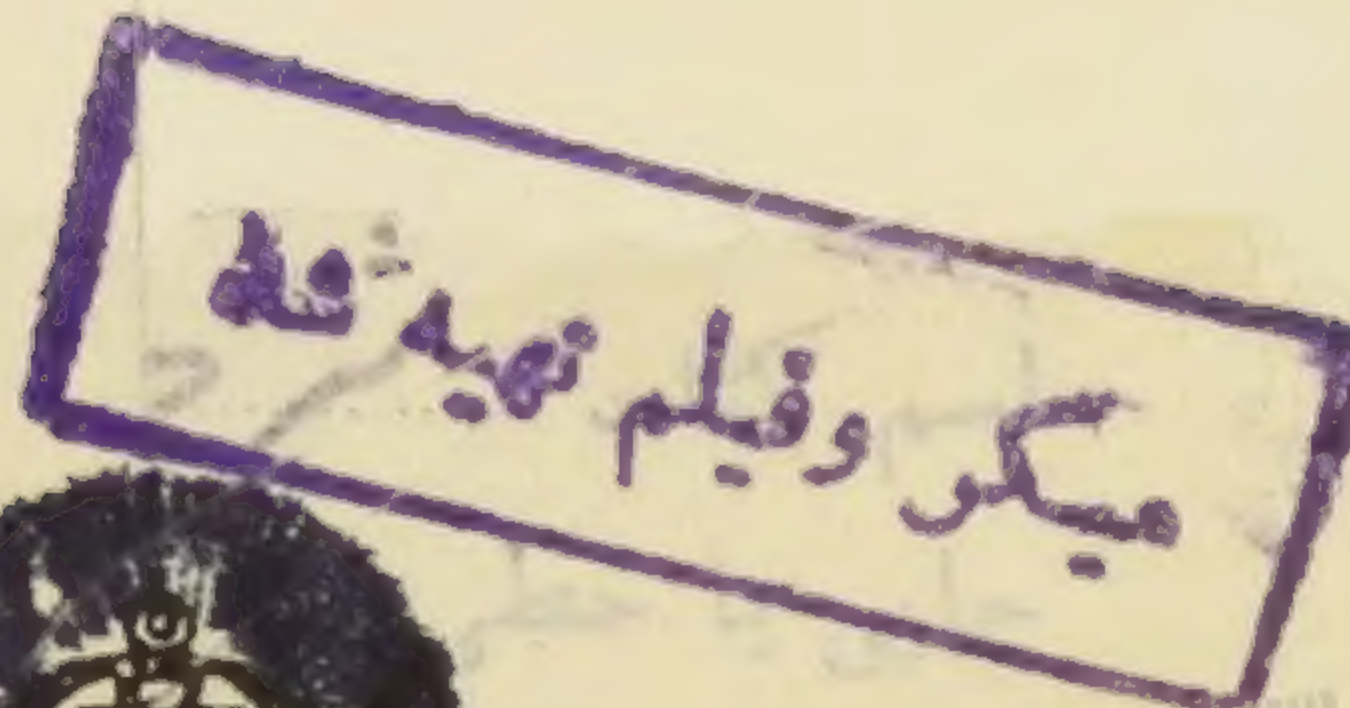 میکروفیلم تهیه شد